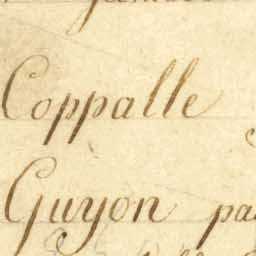 Coppalle
Guyon pa